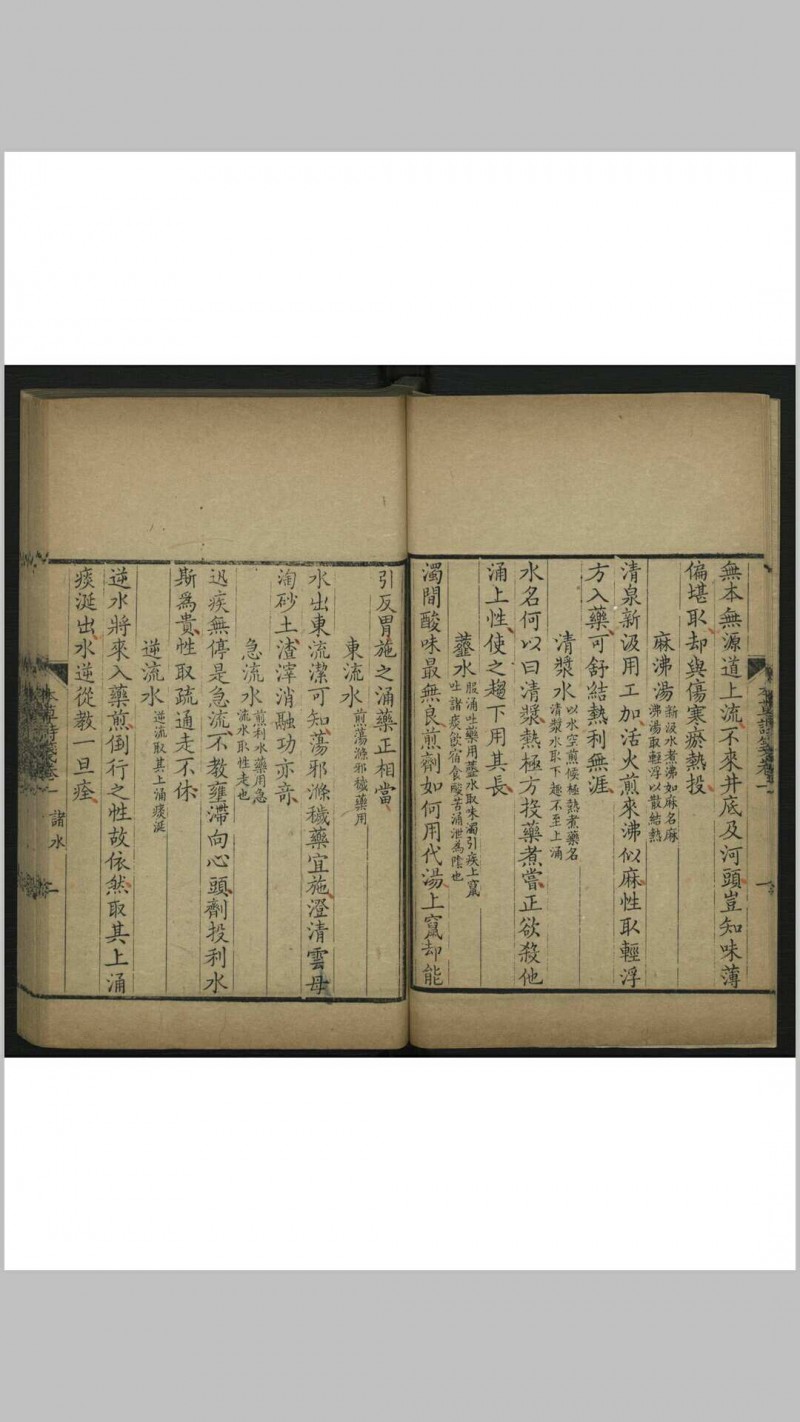 無本無源道上流不來井底及河頭豈知味薄
偏堪取却與傷寒瘀熱投
麻沸湯 新汲水煮沸如麻名麻
沸湯取輕浮以散結熱
清泉新汲用工加活火煎來沸似麻性取輕浮
方入藥可舒結熱利無涯
清漿水 以水空煎候極熱煮藥名
清漿水取下趨不至上涌
水名何以曰清漿熱極方投藥煮嘗正欲殺他
涌上性使之趨下用其長
虀水 服涌吐藥用虀水取味濁引疾上竄
吐諸痰飲宿食酸苦涌泄為陰也
濁間酸味最無良煎劑如何用代湯上竄却能
引反胃施之涌藥正相當
東流水 煎蕩滌邪穢藥用
水出東流潔可知蕩邪滌穢藥宜施澄清雲母
淘砂土渣滓消融功亦奇
急流水 煎利水藥用急
流水取性走也
迅疾無停是急流不教壅滯向心頭劑投利水
斯為貴性取疏通走不休
逆流水 逆流取其上涌痰涎
逆水將來入藥煎倒行之性故依然取其上涌
痰涎出水逆從教一旦痊
諸水
一